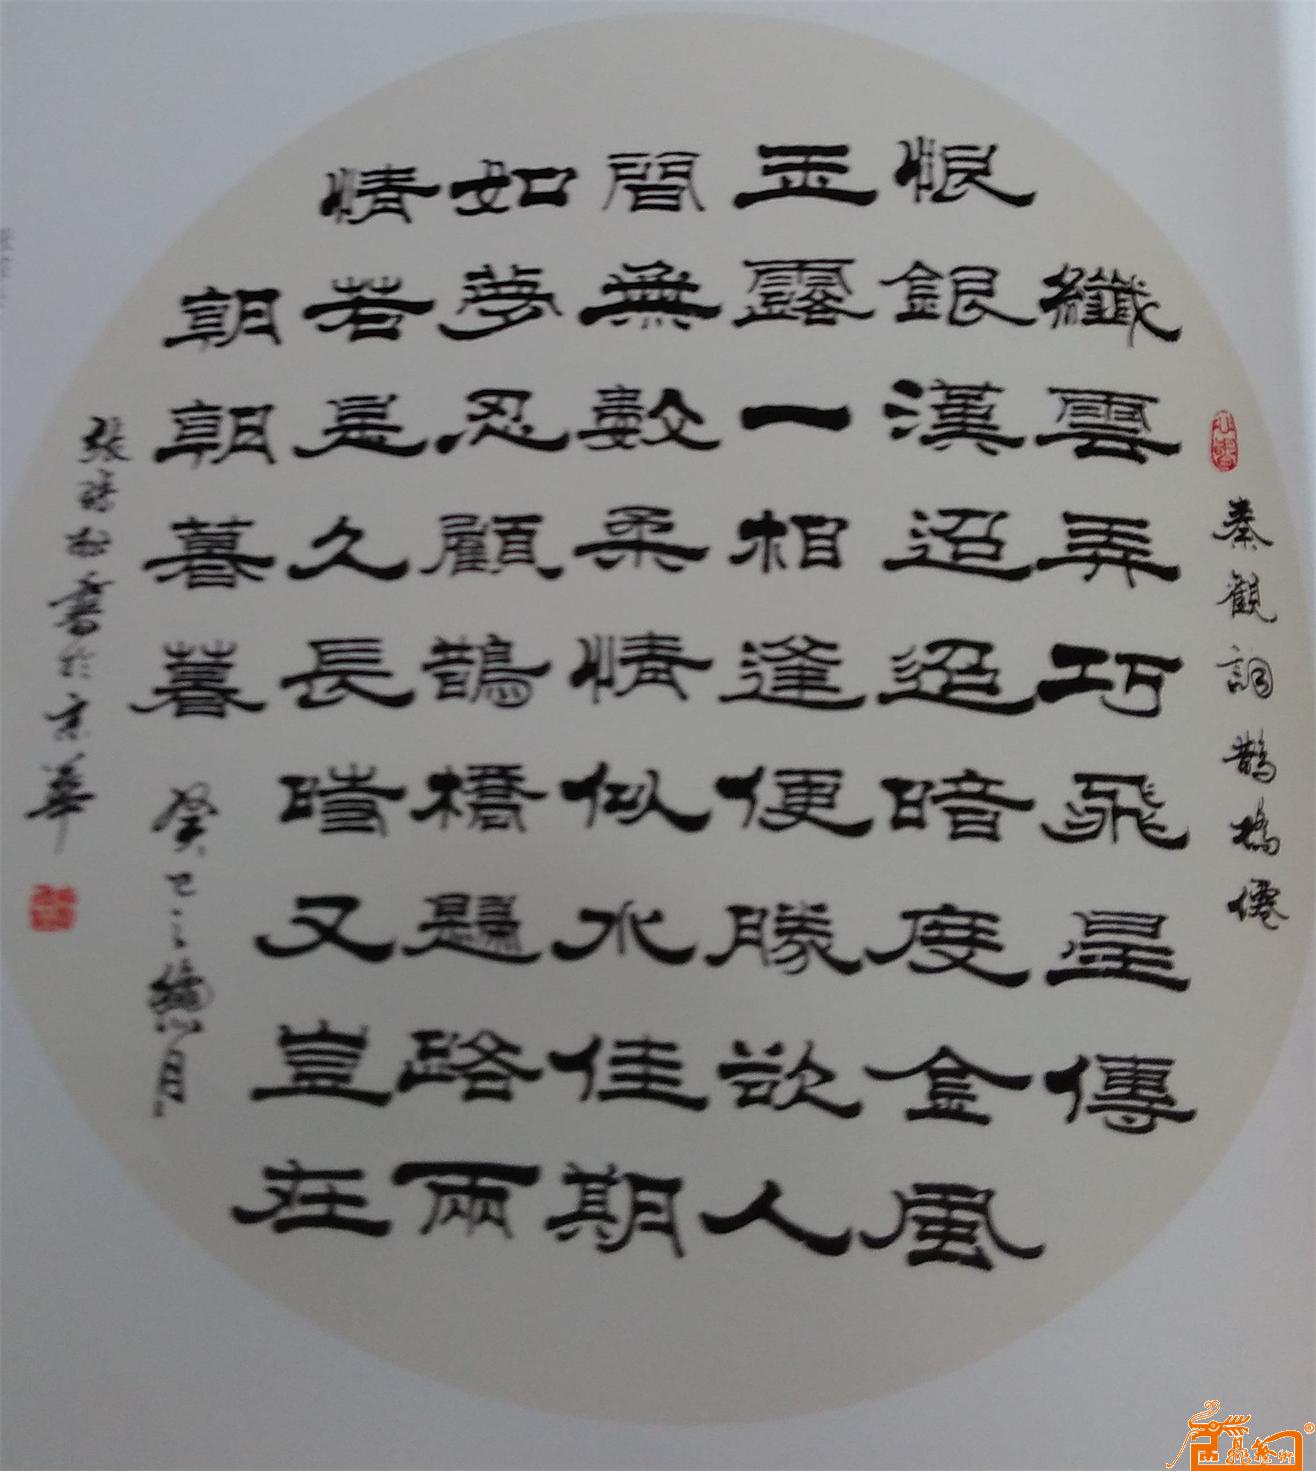 秦觀詞鵲橋僊
纖雲弄巧飛星傳
恨銀漢迢迢暗度金風
玉露一相逢便勝欲人
間無數柔情似水佳期
如夢忍顧鵲橋歸路兩
情若是久長時又豈在
朝朝暮暮 癸巳之月
張松書於京華